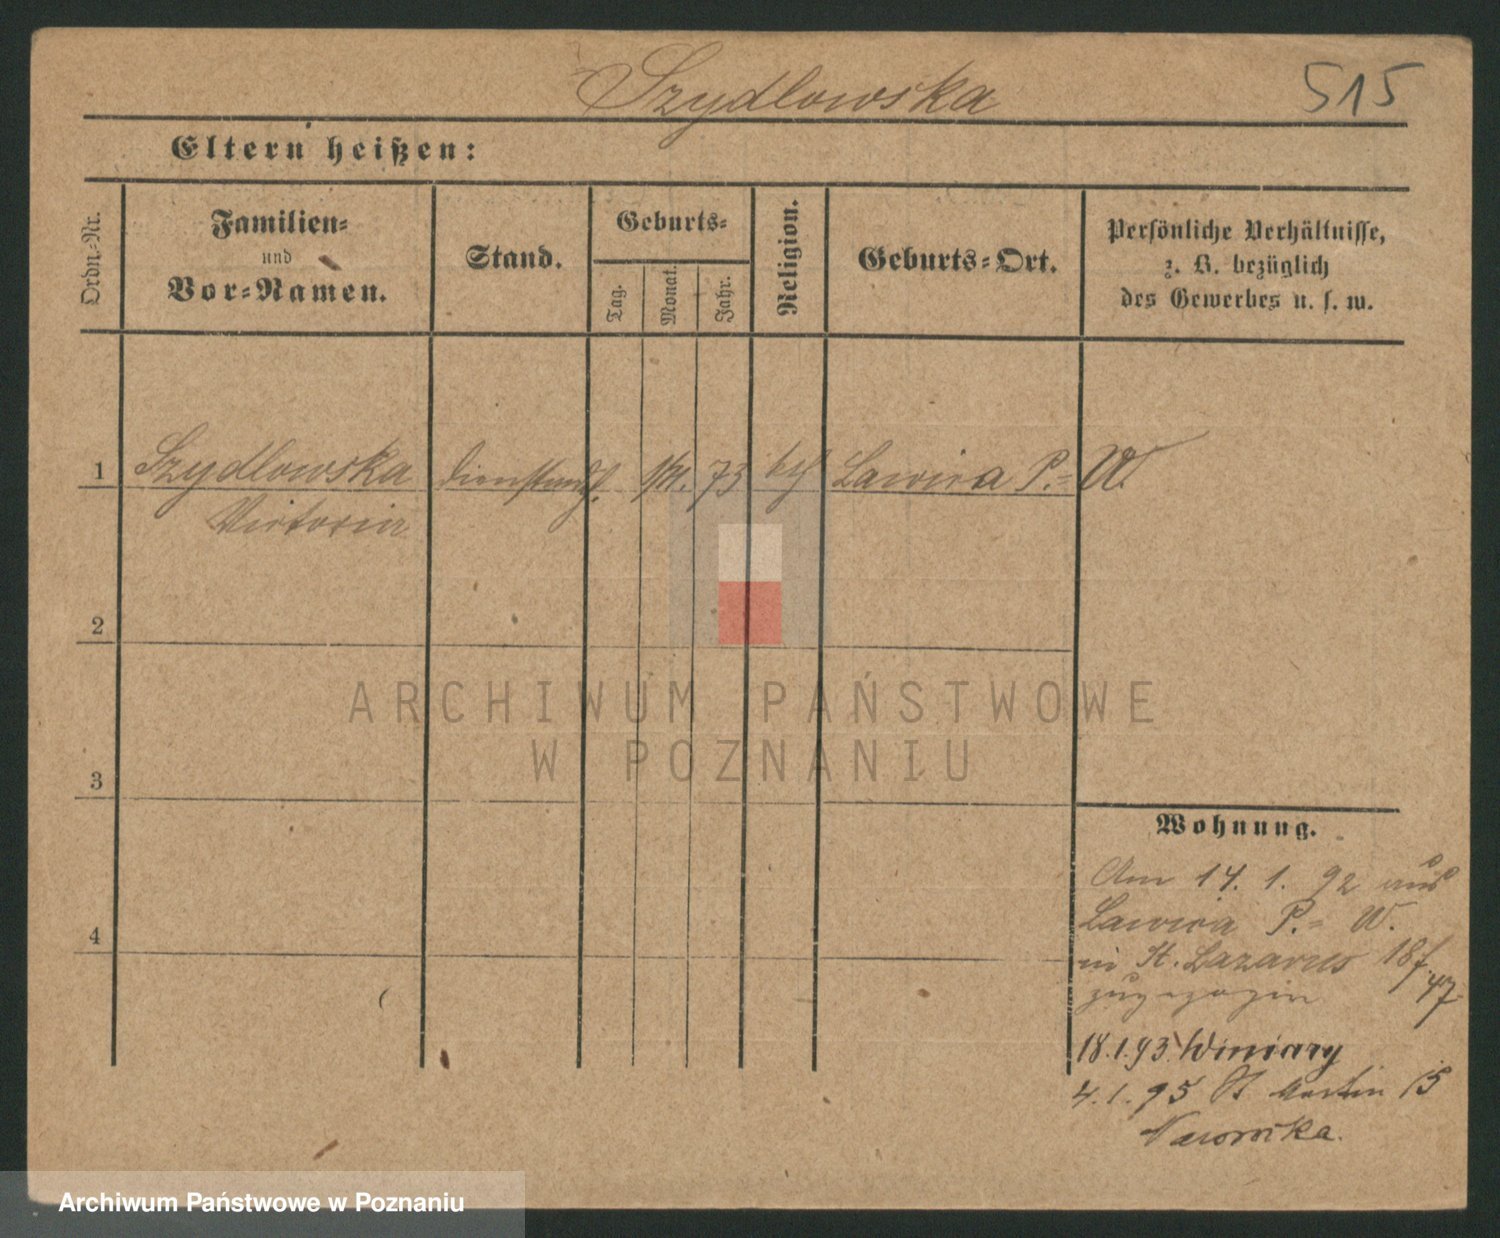 Szydlowska
515
Eltern heißen:
Ordn.=Nr.
Familien=
und
Vor=Namen.
Stand.
Geburts=
Tag.
Monat.
Jahr.
Religion.
Geburts=Ort.
Persönliche Verhältnisse,
z. B. bezüglich
des Gewerbes u. s. w.
1
Szydlowska
Victoria
73
Lawica P.=W.
2
ARCHIWUM PAŃSTWOWE
W POZNANIU
3
Wohnung.
Am 14. 1. 92 aus
Lawica P.= W.
in St. Lazarus 18f
zugezogen 47
18.1.93 Winiary
4.1.95 St Martin 15
4
Archiwum Państwowe w Poznaniu